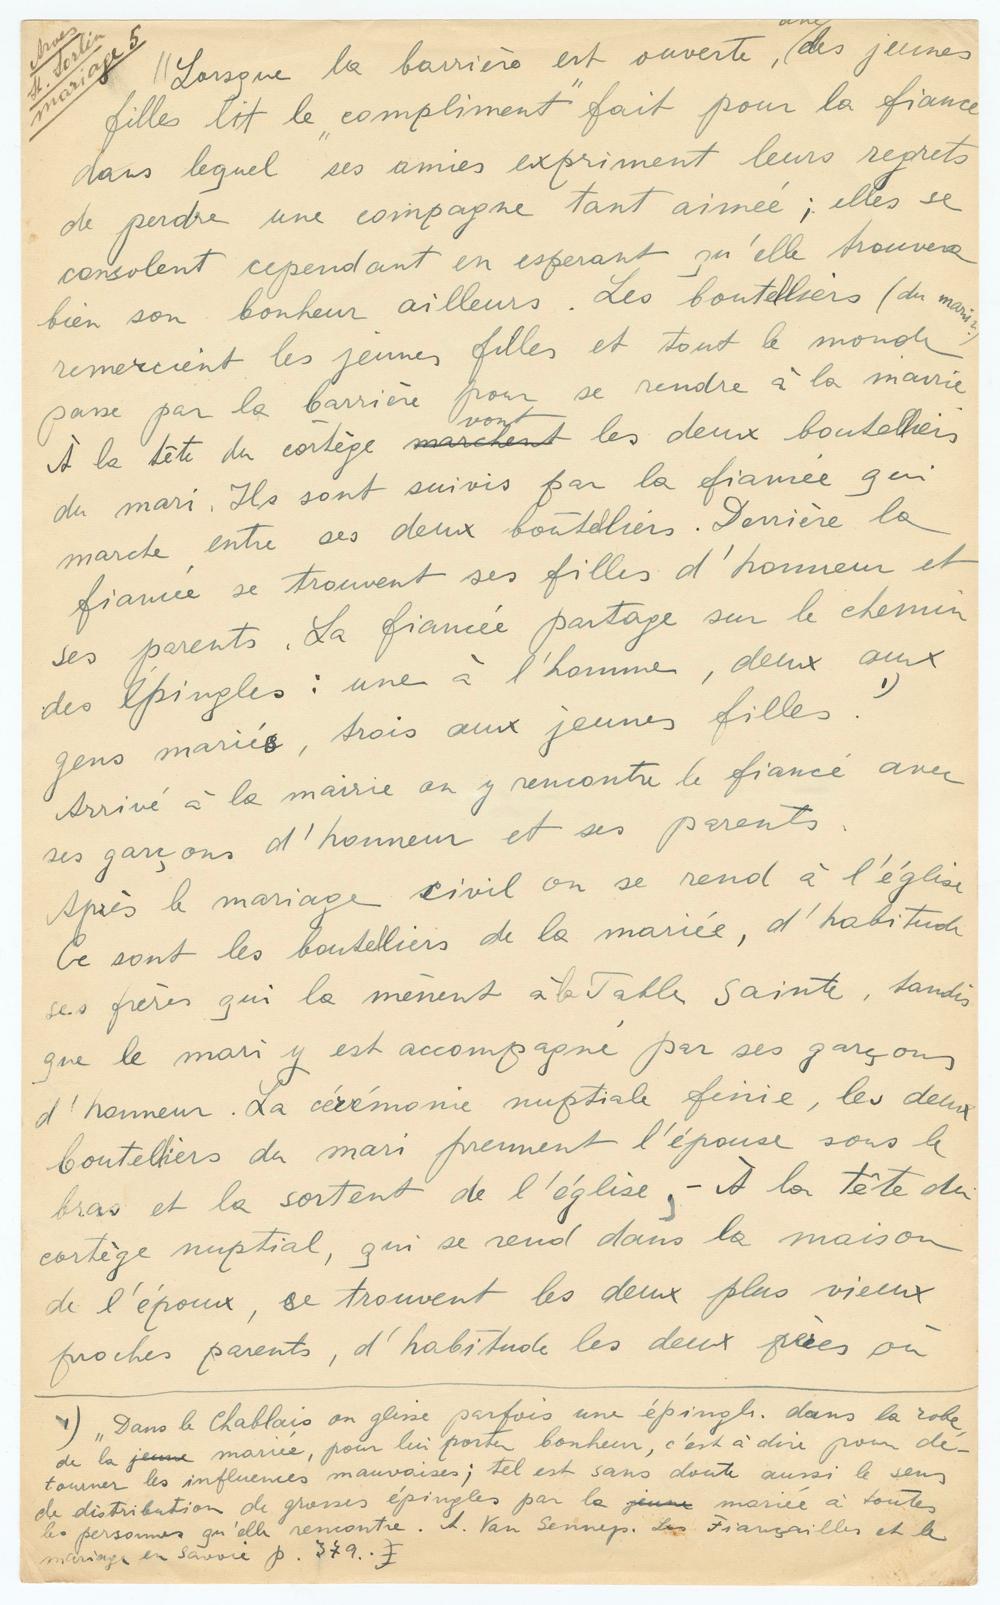 Arves
St. Sorlin
mariage 5
"Lorsque la barrière est ouverte, une des jeunes
filles lit le „compliment" fait pour la fiancé
dans lequel ses amies expriment leurs regrets
de perdre une compagne tant aimée ; elles se
consolent cependant en esperant qu'elle trouvera
bien son bonheur ailleurs. Les boutelliers (du mari ?)
remercient les jeunes filles et tout le monde
passe par la barrière pour se rendre à la mairie
À la tête du cortège marchent vont les deux boutelliers
du mari. Ils sont suivis par la fiancée qui
marche entre ses deux boutelliers. Derrière la
fiancée se trouvent ses filles d'honneur et
ses parents. La fiancée partage sur le chemin
des épingles : une à l'homme, deux aux
gens mariés, trois aux jeunes filles. 1)
Arrivé à la mairie on y rencontre le fiancé avec
ses garçons d'honneur et ses parents.
Après le mariage civil on se rend à l'église
Ce sont les boutelliers de la mariée, d'habitude
ses frères qui la mènent à la Table Sainte, tandis
que le mari y est accompagné par ses garçons
d'honneur. La cérémonie nuptiale finie, les deux
boutelliers du mari prennent l'épouse sous le
bras et la sortent de l'église, - À la tête du
cortège nuptial, qui se rend dans la maison
de l'époux, se trouvent les deux plus vieux
proches parents, d'habitude les deux pères où
1) „Dans le Chablais on glisse parfois une épingle. dans la robe
de la jeune mariée, pour lui porter bonheur, c'est à dire pour dé-
tourner les influences mauvaises; tel est sans doute aussi le sens
de distribution de grosses épingles par la jeune mariée à toutes
les personnes qu'elle rencontre. A. Van Gennep. Les Fiançailles et le
mariage en Savoie p. 379..